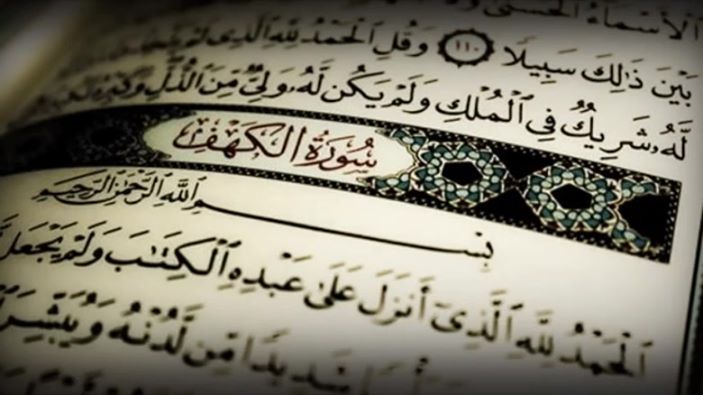 ٱلۡأَسۡمَآءُ ٱلۡحُسۡنَىٰ
بَيۡنَ ذَٰلِكَ سَبِيلًا ١١٠ وَقُلِ ٱلۡحَمۡدُ لِلَّهِ ٱلَّذِي لَمۡ يَتَّخِذۡ
لَّهُۥ شَرِيكٞ فِي ٱلۡمُلۡكِ وَلَمۡ يَكُن لَّهُۥ وَلِيّٞ مِّنَ ٱلذُّلِّ وَكَبِّرۡهُ تَكۡبِيرَۢا
سُورَةُ الكَهْفِ
بِسۡمِ ٱللَّهِ ٱلرَّحۡمَٰنِ ٱلرَّحِيمِ
ٱلۡحَمۡدُ لِلَّهِ ٱلَّذِيٓ أَنزَلَ عَلَىٰ عَبۡدِهِ ٱلۡكِتَٰبَ وَلَمۡ يَجۡعَل
شَدِيدٗا مِّن لَّدُنۡهُ وَيُبَشِّرَ